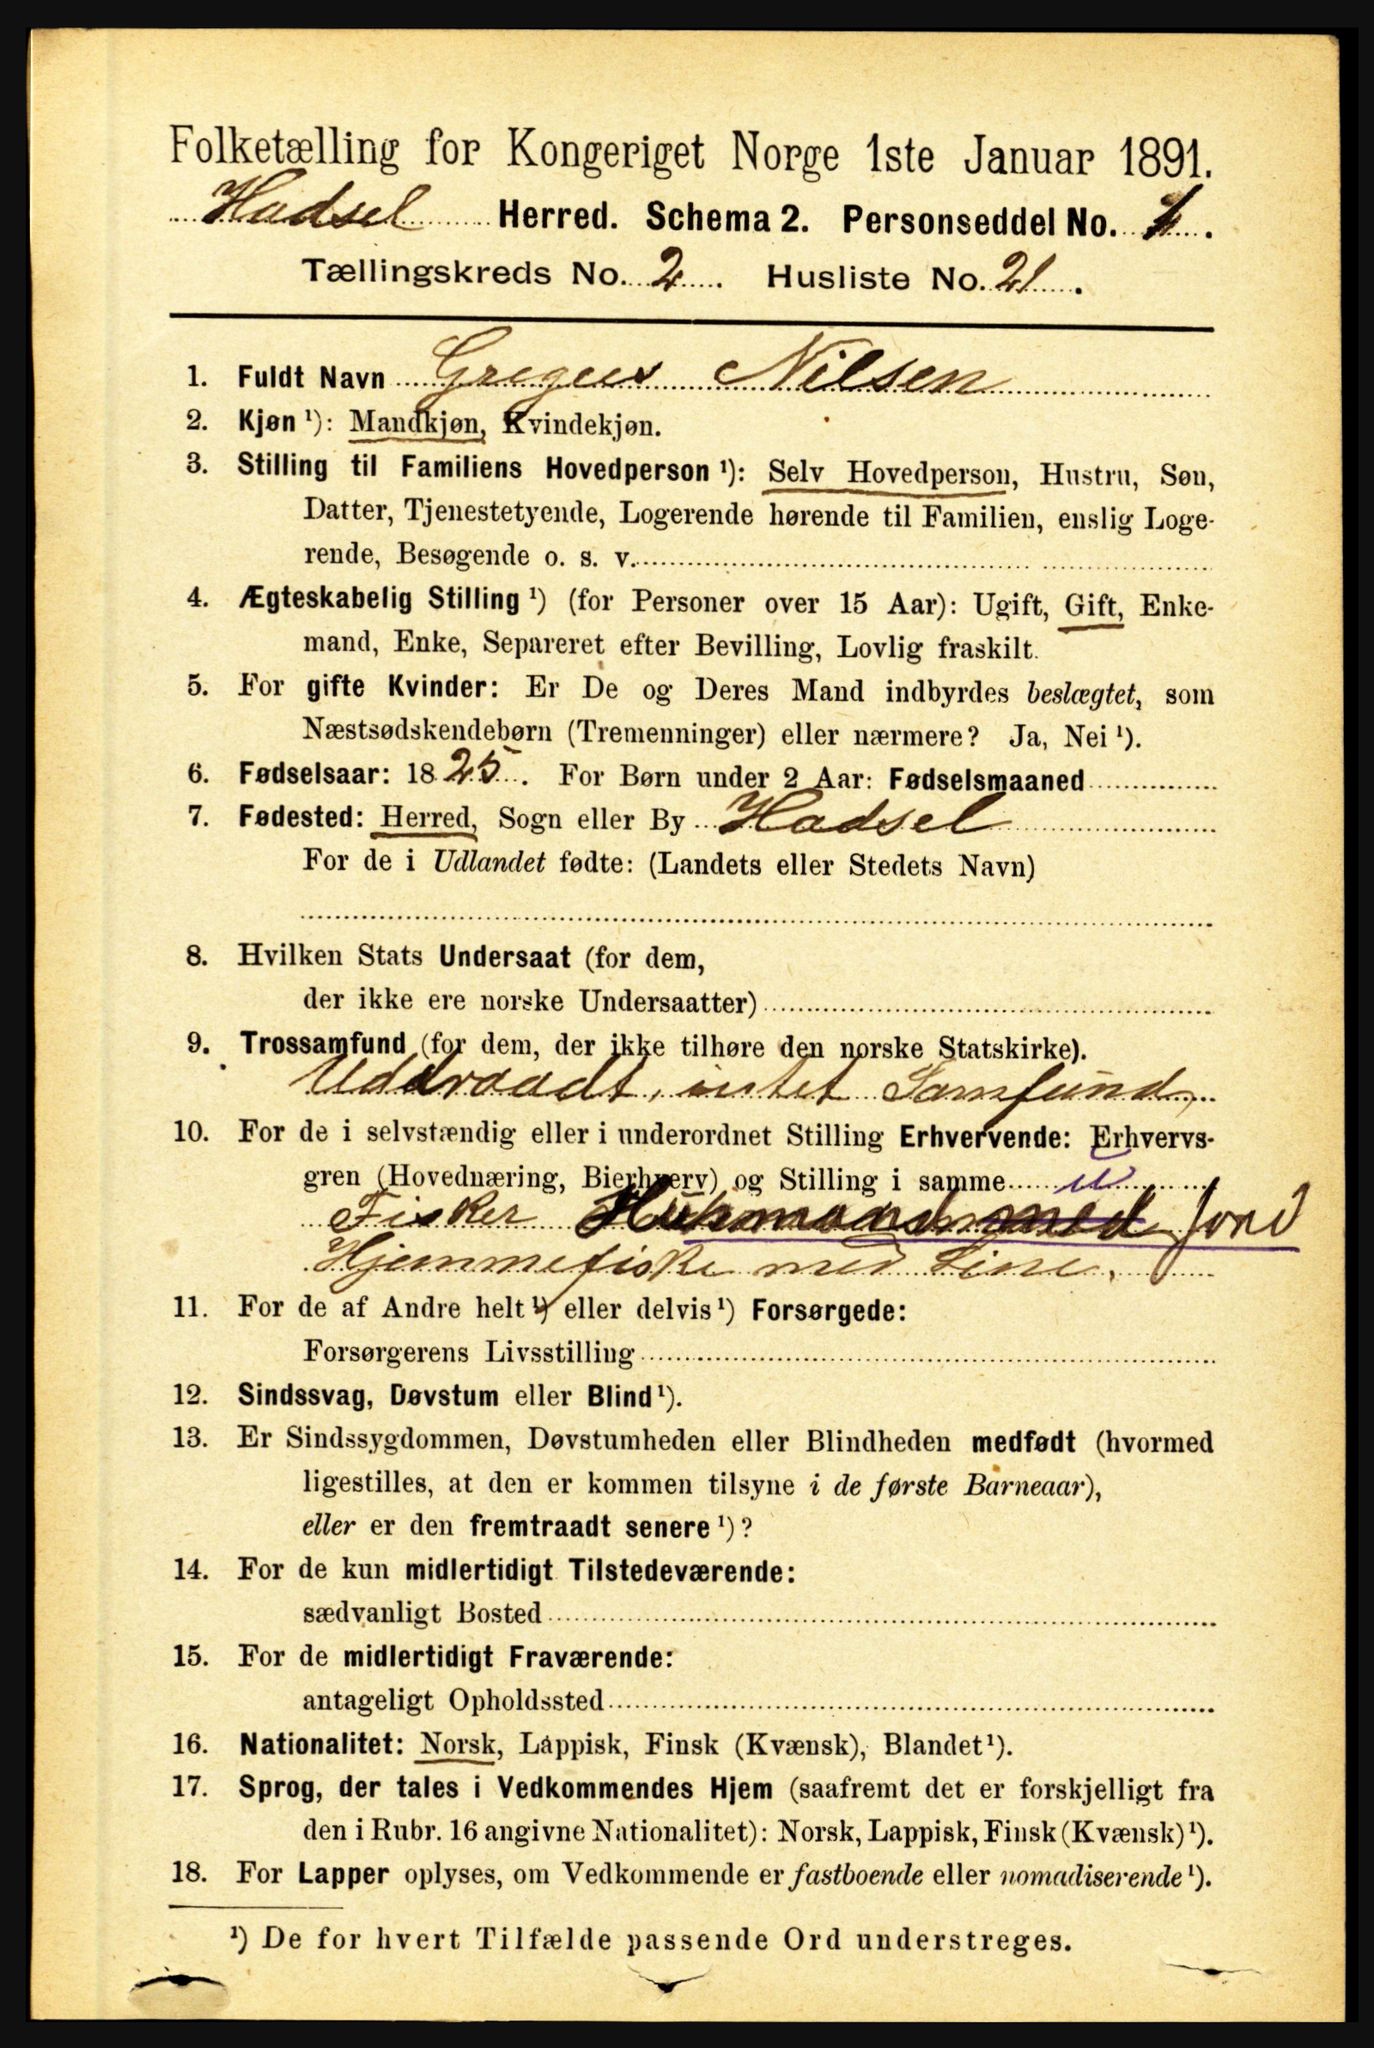 Folketælling for Kongeriget Norge 1ste Januar 1891.
Hadsel Herred. Schema 2. Personseddel No. 1.
Tællingskreds No. 2. Husliste No. 21.
1. Fuldt Navn Gregus Nilsen
2. Kjøn ¹): Mandkjøn, Kvindekjøn.
3. Stilling til Familiens Hovedperson ¹): Selv Hovedperson, Hustru, Søn,
Datter, Tjenestetyende, Logerende hørende til Familien, enslig Loge-
rende, Besøgende o. s. v.
4. Ægteskabelig Stilling ¹) (for Personer over 15 Aar): Ugift, Gift, Enke-
mand, Enke, Separeret efter Bevilling, Lovlig fraskilt.
5. For gifte Kvinder: Er De og Deres Mand indbyrdes beslægtet, som
Næstsødskendebørn (Tremenninger) eller nærmere? Ja, Nei ¹).
6. Fødselsaar: 1825. For Børn under 2 Aar: Fødselsmaaned
7. Fødested: Herred, Sogn eller By Hadsel
For de i Udlandet fødte: (Landets eller Stedets Navn)
8. Hvilken Stats Undersaat (for dem,
der ikke ere norske Undersaatter)
9. Trossamfund (for dem, der ikke tilhøre den norske Statskirke).
Uddraadt, intet Samfund,
10. For de i selvstændig eller i underordnet Stilling Erhvervende: Erhvervs-
gren (Hovednæring, Bierhverv) og Stilling i samme
Fisker Husmand med Jord
Hjemmefiske med Line.
11. For de af Andre helt ¹) eller delvis ¹) Forsørgede:
Forsørgerens Livsstilling
12. Sindssvag, Døvstum eller Blind ¹).
13. Er Sindssygdommen, Døvstumheden eller Blindheden medfødt (hvormed
ligestilles, at den er kommen tilsyne i de første Barneaar),
eller er den fremtraadt senere ¹)?
14. For de kun midlertidigt Tilstedeværende:
sædvanligt Bosted
15. For de midlertidigt Fraværende:
antageligt Opholdssted
16. Nationalitet: Norsk, Lappisk, Finsk (Kvænsk), Blandet ¹).
17. Sprog, der tales i Vedkommendes Hjem (saafremt det er forskjelligt fra
den i Rubr. 16 angivne Nationalitet): Norsk, Lappisk, Finsk (Kvænsk) ¹).
18. For Lapper oplyses, om Vedkommende er fastboende eller nomadiserende ¹).
¹) De for hvert Tilfælde passende Ord understreges.